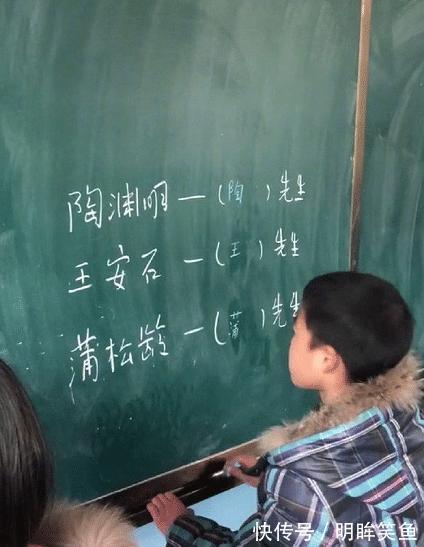 陶渊明—(陶)先生
王安石—(王)先生
蒲松龄—(蒲)先生
快传号/明眸笑鱼